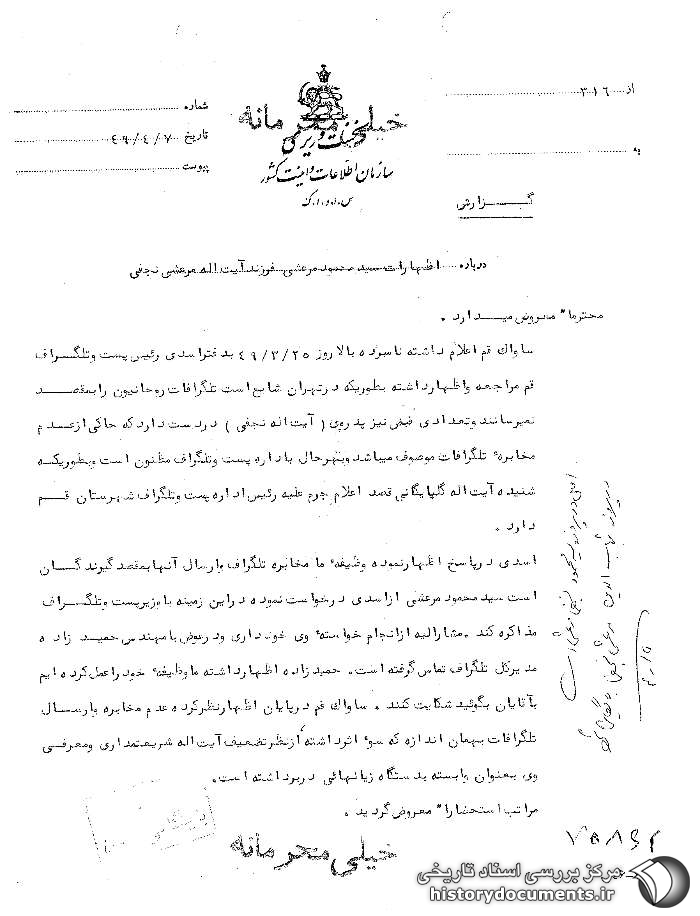 از ۳۱۶
به
شماره
تاریخ ۴۹/۴/۷
پیوست
خیلی محرمانه
نخست وزیری
سازمان اطلاعات و امنیت کشور
س.ا.و.ا.ک
گـــزارش
درباره اظهارات سید محمود مرعشی فرزند آیت اله مرعشی نجفی
محترما" معروض میـدارد .
ساواک قم اعلام داشته نامبرده بالا روز ۴۹/۳/۲۵ بدفتر اسدی رئیس پست وتلگـراف
قم مراجعه واظهارداشته بطوریکه درتهران شایع است تلگرافات روحانیون را بمقصـد
نمیرسانند وتعدادی قبض نیز پدروی ( آیت اله نجفی ) دردست دارد که حاکی ازعـدم
مخابره تلگرافات موصوف میباشد وبهرحال باداره پست وتلگراف مظنون است وبطوریکـه
شنیده آیت اله گلپایگانی قصد اعلام جرم علیه رئیس اداره پست وتلگراف شهرستان قـم
دارد .
اسدی درپاسخ اظهارنموده وظیفه ما مخابره تلگراف وارسال آنها بمقصد گیرندگـان
است سید محمود مرعشی ازاسدی درخواست نموده دراین زمینه با وزیر پست وتلگـراف
مذاکره کند . مشارالیه ازانجام خواسته وی خودداری ودرعوض با مهندس حمیـد زاده
مدیرکل تلگراف تماس گرفته است. حمیدزاده اظهارداشته ما وظیفه خودراعمل کرده ایم
بآقایان بگوئید شکایت کنند . ساواک قم درپایان اظهارنظرکرده عدم مخابره وارسـال
تلگرافات بهمان اندازه که سوء اثرداشته ازنظرتضعیف آیت اله شریعتمداری ومعرفـی
وی بعنوان وابسته بدستگاه زیانهائی دربرداشته است.
مراتب استحضارا" معروض گردید .
خیلی محرمانه
مرکز بررسی اسناد تاریخی
historydocuments.ir